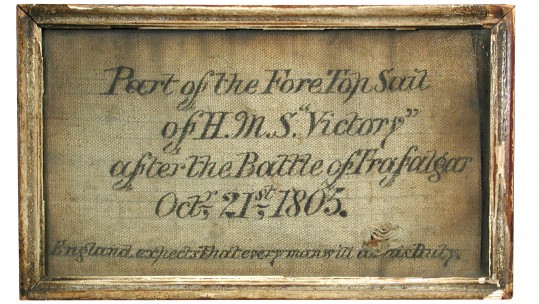 Part of the Fore Top Sail
of H.M.S. "Victory"
after the Battle of Trafalgar
Octr, 21st, 1805.
England expects that every man will his Duty.